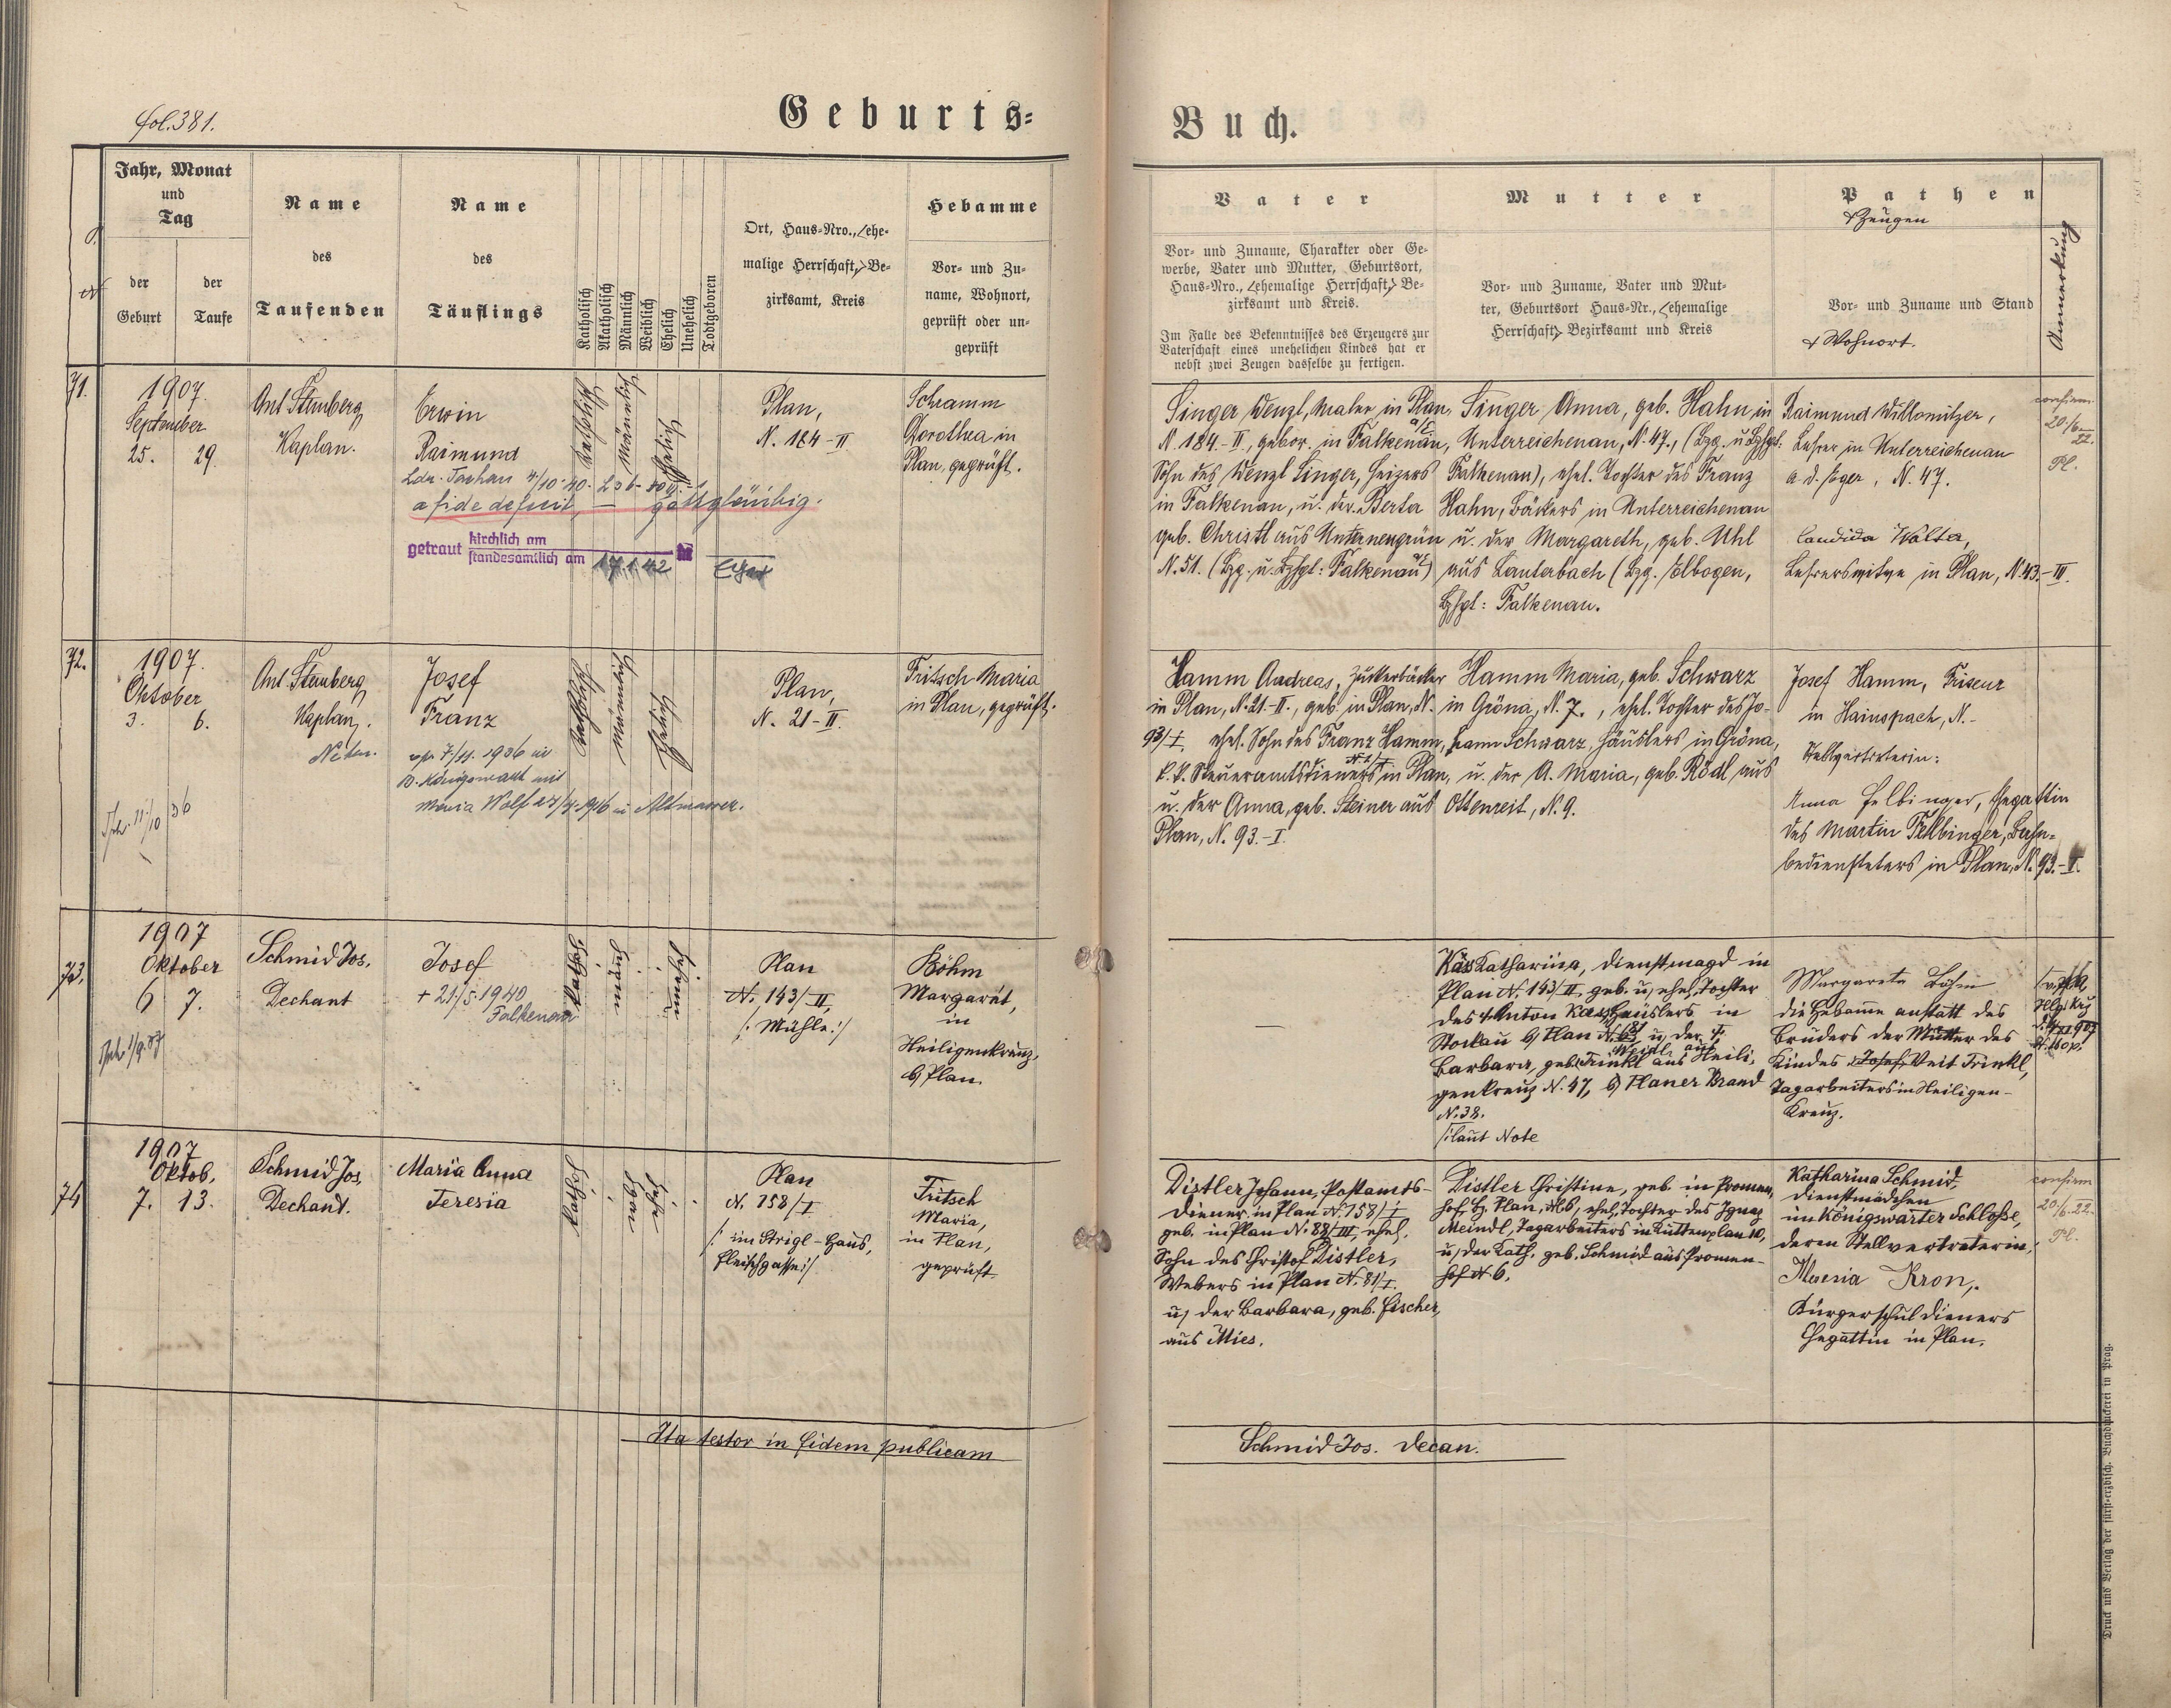 fol. 381.
Geburts-
Buch.
Jahr, Monat
und
Tag
der
Geburt
der
Taufe
Name
des
Taufenden
Name
des
Täuflings
Katholisch
Akatholisch
Männlich
Weiblich
Ehelich
Unehelich
Todtgeboren
Ort, Haus-Nro., ehe-
malige Herrschaft, Be-
zirksamt, Kreis
Hebamme
Vor- und Zu-
name, Wohnort,
geprüft oder un-
geprüft
Vater
Vor- und Zuname, Charakter oder Ge-
werbe, Vater und Mutter, Geburtsort,
Haus-Nro., ehemalige Herrschaft, Be-
zirksamt und Kreis.
Im Falle des Bekenntnisses des Erzeugers zur
Vaterschaft eines unehelichen Kindes hat er
nebst zwei Zeugen dasselbe zu fertigen.
Mutter
Vor- und Zuname, Vater und Mut-
ter, Geburtsort Haus-Nr., ehemalige
Herrschaft, Bezirksamt und Kreis
Pathen
& Zeugen
Vor- und Zuname und Stand
& Wohnort.
Anmerkung
71.
1907.
September
25. 29.
Ant. Stenberg
Kaplan.
Erwin
Raimund
a fide defecit, — gottgläubig.
getraut kirchlich am
standesamtlich am 17.1.42 Eger
katholisch
männlich
ehelich
Plan,
N. 184-II
Schramm
Dorothea in
Plan, geprüft.
Singer Wenzl, Maler in Plan,
N. 184-II, gebor. in Falkenau a/E,
Sohn des Wenzl Singer, Heizers
in Falkenau, u. der Berta
geb. Christl aus Unterneugrün
N. 51. (Bzg. u. Bzhpt: Falkenau a/E)
Singer Anna, geb. Hahn in
Unterreichenau, N. 47., (Bzg. u. Bzhpt:
Falkenau), ehel. Tochter des Franz
Hahn, Bäckers in Unterreichenau
u. der Margareth, geb. Uhl
aus Lauterbach (Bzg. Elbogen,
Bzhpt: Falkenau.
Raimund Willomitzer,
Lehrer in Unterreichenau
a. d. Eger, N. 47.
Candida Walter,
Lehrerswitwe in Plan, N. 43-III.
confirm.
20/6 22.
Pl.
72.
1907.
Oktober
3. 6.
Ant. Stenberg
Kaplan.
Josef
Franz
cop. 7/11. 1936 in
B. Königswart mit
Maria Wolf
katholisch
männlich
ehelich
Plan,
N. 21-II.
Fritsch Maria
in Plan, geprüft.
Hamm Andreas, Zuckerbäcker
in Plan, N. 21-II., geb. in Plan, N.
93/I, ehel. Sohn des Franz Hamm,
k. k. Steueramtsdieners in Plan,
u. der Anna, geb. Steiner aus
Plan, N. 93-I.
Hamm Maria, geb. Schwarz
in Gröna, N. 7., ehel. Tochter des Jo-
hann Schwarz, Häuslers in Gröna,
u. der A. Maria, geb. Rödl aus
Ottenreit, N. 9.
Josef Hamm, Friseur
in Hainspach, N.-
Stellvertreterin:
Anna Felbinger, Ehegattin
des Martin Felbinger, Bahn-
bediensteters in Plan, N. 93-I.
73.
1907
Oktober
6 7.
Schmid Jos.
Dechant
Josef
+ 21/5. 1940
Falkenau
Plan
N. 143/II
/: Mühle :/
Böhm
Margaret,
in
Heiligenkreuz,
b/ Plan.
—
Käs Katharina, Dienstmagd in
Plan N. 143/II, geb. u. ehel. Tochter
des † Anton Käs, Häuslers in
Stockau b/ Plan N. u. der †
Barbara, geb. Trinkl aus Heili-
genkreuz N. 47, b/ Planer Brand
N. 38.
/: laut Note
Margareta Böhm
die Hebamme anstatt des
Bruders der Mutter des
Kindes Josef Veit Trinkl,
Tagarbeiters in Heiligen-
Kreuz.
74
1907
Oktob.
7. 13.
Schmid Jos.
Dechant.
Maria Anna
Teresia
Plan
N. 158/I
/: im Strigl-Haus,
Fleischgasse :/
Fritsch
Maria,
in Plan,
geprüft.
Distler Johann, Postamts-
diener in Plan N. 158/I
geb. in Plan N. 88/III, ehel.
Sohn des Christof Distler,
Webers in Plan N. 81/I
u. der Barbara, geb. Fischer,
aus Mies.
Distler Christine, geb. in Promen-
hof b/ Plan, N. 6, ehel. Tochter des Ignaz
Meindl, Tagarbeiters in Kuttenplan 10,
u. der Kath. geb. Schmid aus Promen-
hof N 6.
Katharina Schmid,
Dienstmädchen
im Königswarter Schloße,
deren Stellvertreterin:
Theresia Kron,
Bürgerschuldieners
Ehegattin in Plan.
confirm
20/6. 22.
Pl.
Ita testor in fidem publicam
Schmid Jos. Decan.
Druck und Verlag der fürst-erzbisch. Buchdruckerei in Prag.